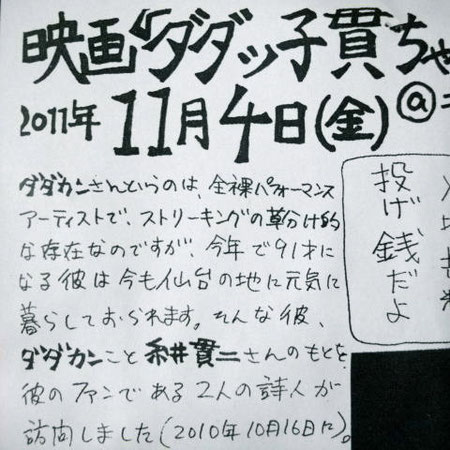 映画「ダダッ子貫ちゃ
2011年 11月4日(金) @
ダダカンさんというのは、全裸パフォーマンス
アーティストで、ストリーキングの草分け的
な存在なのですが、今年で91才に
なる彼は今も仙台の地に元気に
暮らしておられます。そんな彼、
ダダカンこと糸井貫二さんのもとを
彼のファンである2人の詩人が
訪問しました(2010年10月16日に)。
投げ銭だよ